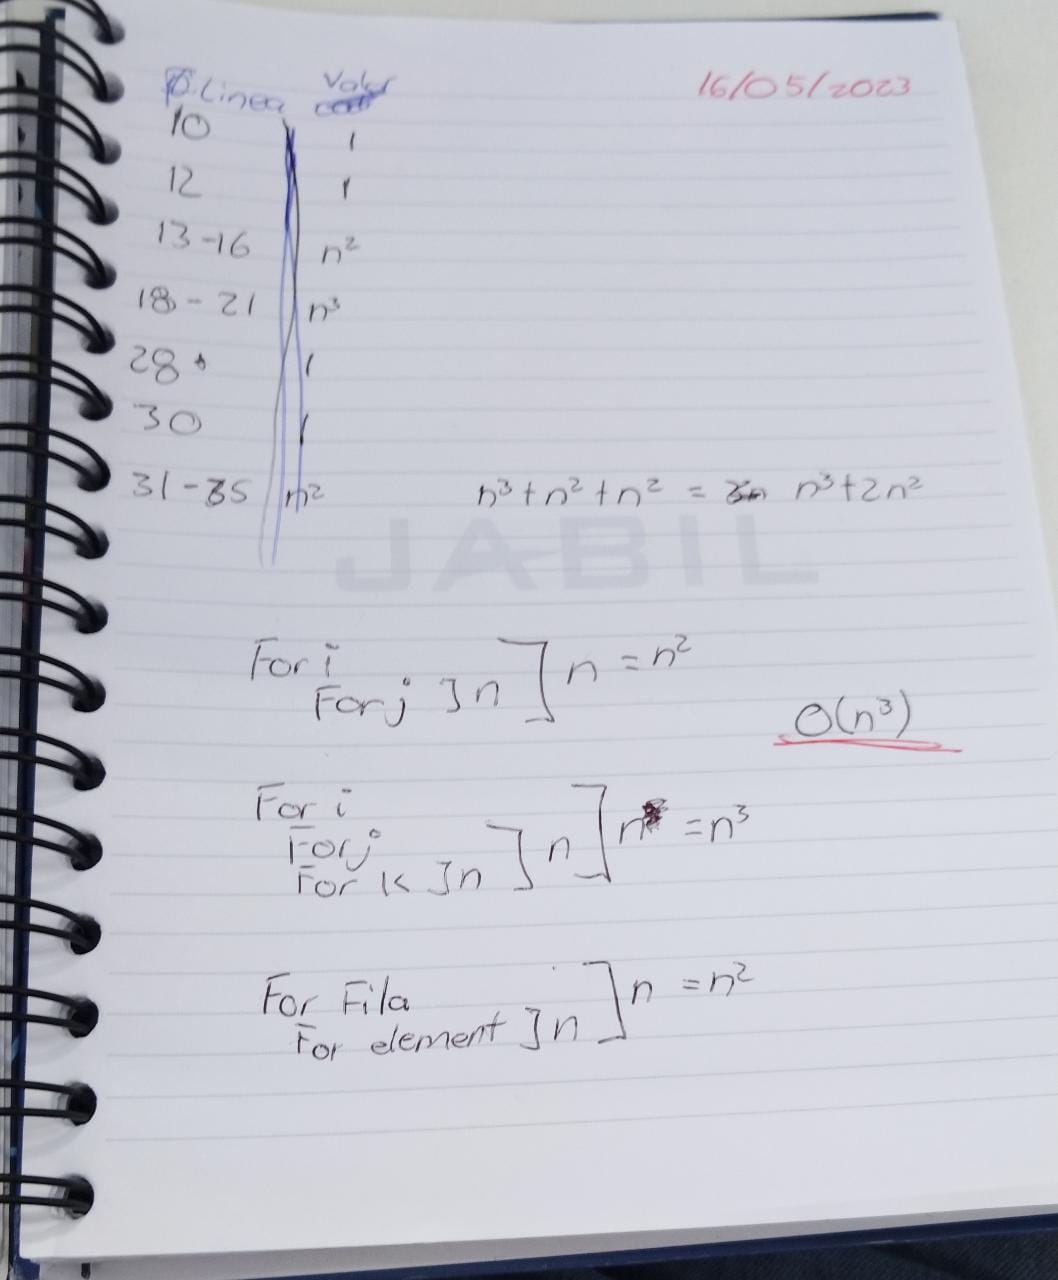 Linea Valor 16/05/2023
10 1
12 1
13-16 n²
18-21 n³
28 1
30 1
31-35 n² n³+n²+n² = n³+2n²
JABIL
For i
For j ]n ]n =n²
O(n³)
For i
For j
For k ]n ]n ]n =n³
For Fila
For element ]n ]n =n²